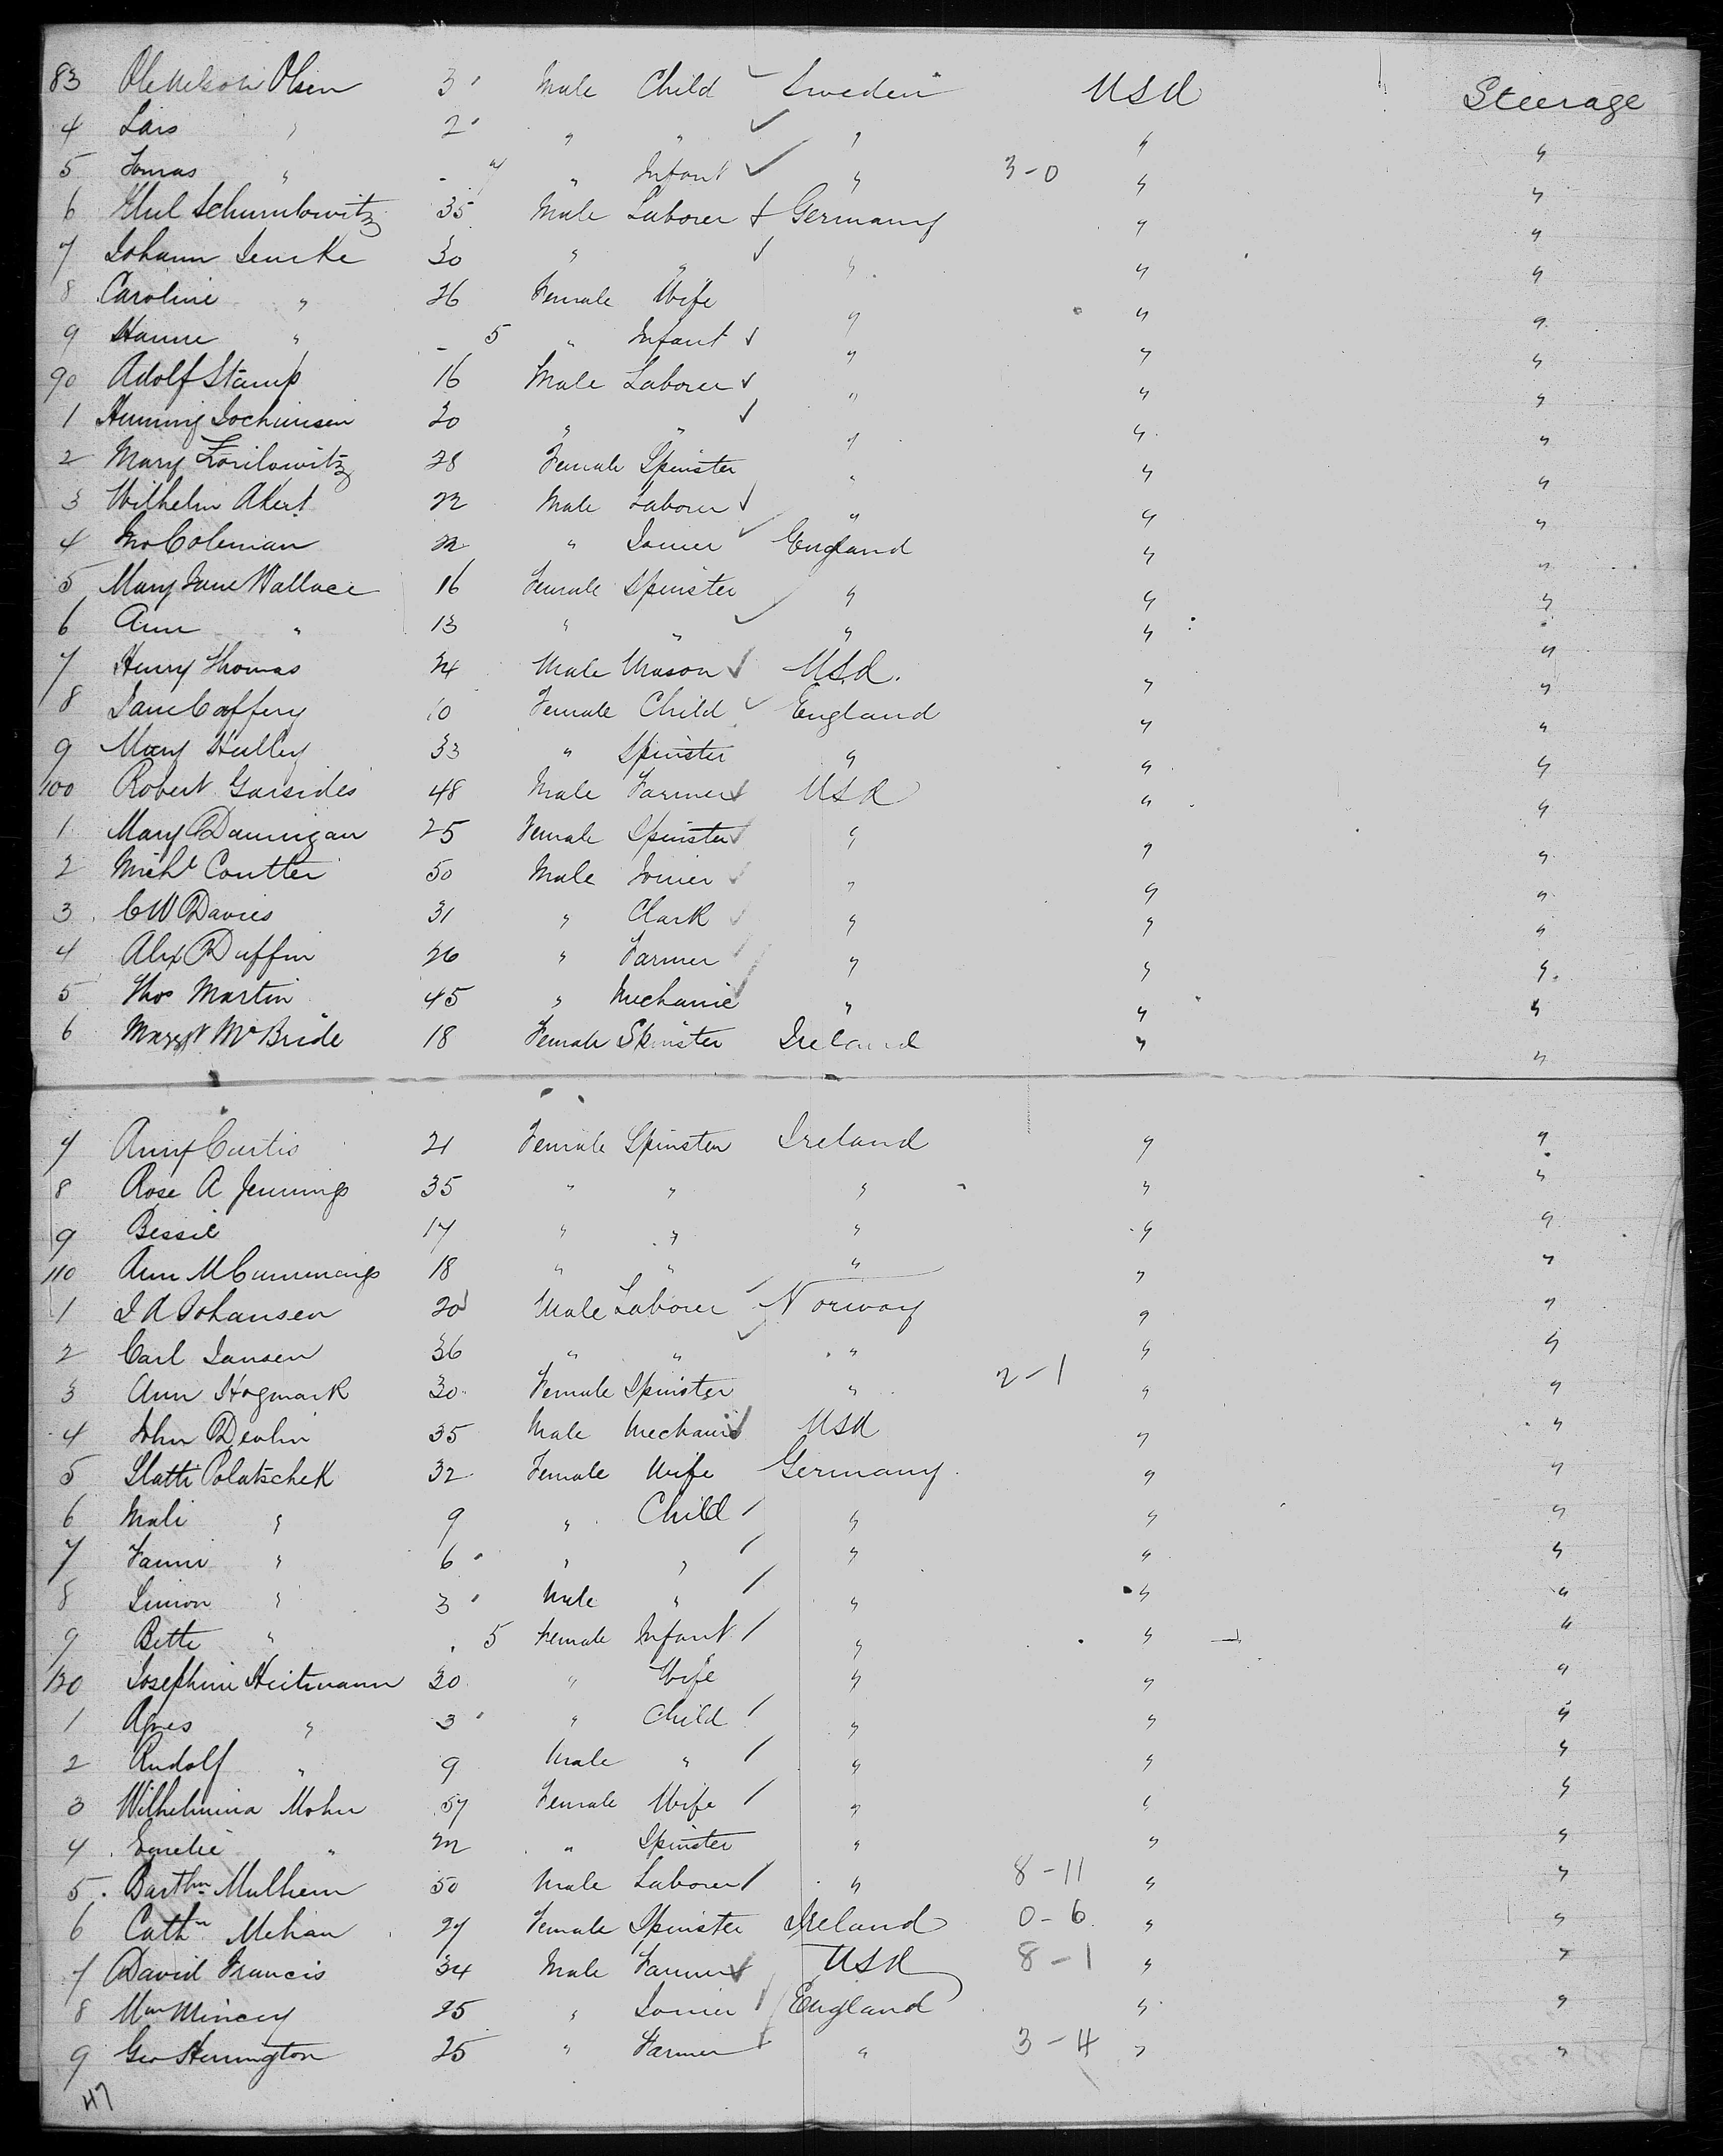 83 Ole Nelson Olsen 3 Male Child Sweden USA Steerage
4 Lars " 2 " " " " "
5 Tomas " - " Infant " 3-0 " "
6 Schumlowitz 35 Male Laborer Germany " "
7 Johann Jencke 30 " " " " "
8 Caroline " 26 Female Wife " " "
9 Hanne " - 5 " Infant " " "
90 Adolf Stamp 16 Male Laborer " " "
1 Henning Jochimsen 20 " " " " "
2 Mary 28 Female Spinster " " "
3 Wilhelm Akert 22 Male Laborer " " "
4 Jno Coleman " Joiner England " "
5 Mary Jane Wallace 16 Female Spinster " " "
6 Ann " 13 " " " " "
7 Henry Thomas 24 Male Mason USA. " "
8 Jane Caffery 10 Female Child England " "
9 Mary Hulley 33 " Spinster " " "
100 Robert Garsides 48 Male Farmer USA " "
1 Mary Dannigan 25 Female Spinster " " "
2 Michl Coutter 50 Male Joiner " " "
3 C W Davies 31 " Clark " " "
4 Alex Duffin 26 " Farmer " " "
5 Thos Martin 45 " Mechanic " " "
6 Margt McBride 18 Female Spinster Ireland " "
7 Amy Curtis 21 Female Spinster Ireland " "
8 Rose A Jennings 35 " " " " "
9 Bessie 17 " " " " "
110 Ann McCummings 18 " " " " "
1 J A Johansen 20 Male Laborer Norway " "
2 Carl Jansen 36 " " " " "
3 Ann Hogmark 30 Female Spinster " 2-1 " "
4 John Devlin 35 Male Mechanic USA " "
5 Slatti Polatschek 32 Female Wife Germany " "
6 Mali " 9 " Child " " "
7 Fanni " 6 " " " " "
8 Simon " 3 Male " " " "
9 Bette " 5 Female Infant " " "
120 Josephine Heitmann 30 " Wife " " "
1 Agnes " 3 " Child " " "
2 Rudolf " 9 Male " " " "
3 Wilhelmina Mohn 57 Female Wife " " "
4 Emelie " 22 " Spinster " " "
5 Barthw Mulhern 50 Male Laborer " 8-11 " "
6 Cathn Mehan 27 Female Spinster Ireland 0-6 " "
7 David Francis 34 Male Farmer USA 8-1 " "
8 Wm Mincey 25 " Joiner England " "
9 Geo Herrington 25 " Farmer " 3-4 " "
47